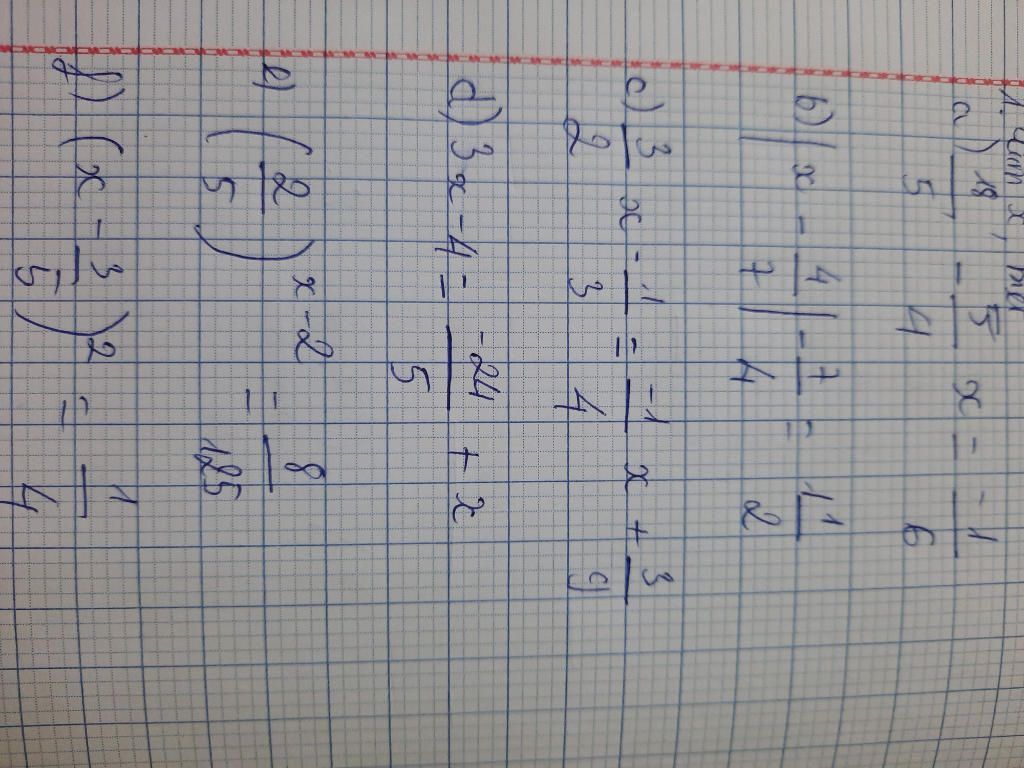 1. Tìm x, biết
a) 18/5 - 5/4 x = -1/6
b) |x - 4/7| - 7/4 = 11/2
c) 3/2 x - 1/3 = -1/4 x + 3/9
d) 3x - 4 = -24/5 + x
e) (2/5)^(x-2) = 8/125
f) (x - 3/5)^2 = 1/4